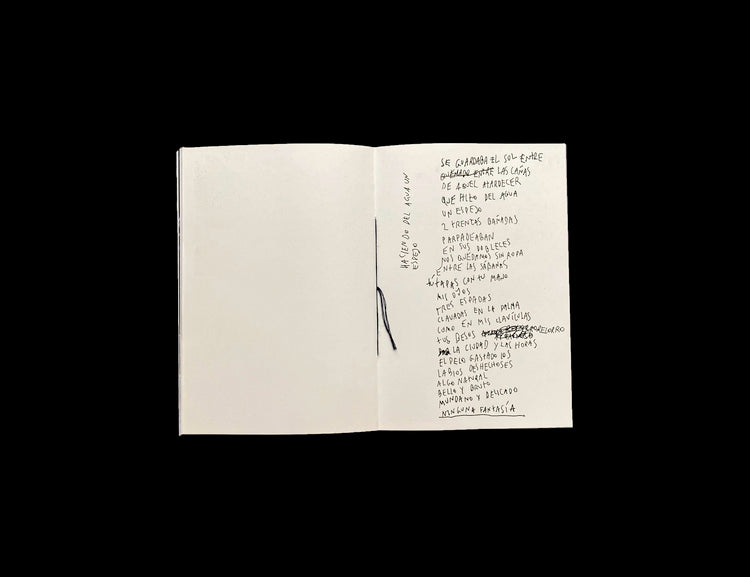 HASIENDO DEL AGUA UN
ESPEJO
SE GUARDABA EL SOL ENTRE
QUEMADO ENTRE LAS CAÑAS
DE AQUEL ATARDECER
QUE HIZO DEL AGUA
UN ESPEJO
2 TRENZAS BAÑADAS
PARPADEABAN
EN SUS DOBLECES
NOS QUEDAMOS SIN ROPA
ENTRE LAS SÁBANAS
TÚ TAPAS CON TU MANO
MIS OJOS
TRES ESPADAS
CLAVADAS EN LA PALMA
COMO EN MIS CLAVÍCULAS
TUS BESOS RECORRO
LA CIUDAD Y LAS HORAS
EL PELO GASTADO LOS
LABIOS DESHECHOSES
ALGO NATURAL
BELLO Y BRUTO
MUNDANO Y DELICADO
NINGUNA FANTASÍA